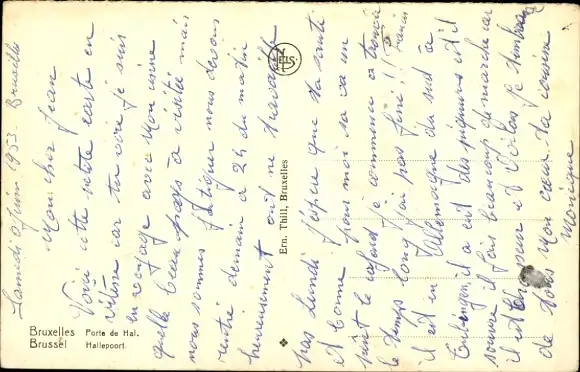 Samedi 6 Juin 1953. Bruxelles
Mon cher Jean
Voici cette petite carte en
vitesse car tu vois je suis
en voyage avec Mon usine
quelle beau pays à visité mais
nous sommes fatiguer nous devons
rentré demain à 24 du matin
heureusement ont ne travaille
pas Lundi. J'espère que ta santé
et bonne pour moi sa va un
peut le cafard je commence a trouvé
le temps long j'ai pas fini!! Francis
il est en Allemagne du sud à
il a eut des piqures et il
souvre il fais beaucoup de marche car
il est et voilas je t'embrasse
de tous mon cœur ta cousine
Monique
Ern. Thill, Bruxelles
Bruxelles Porte de Hal.
Brussel Hallepoort.